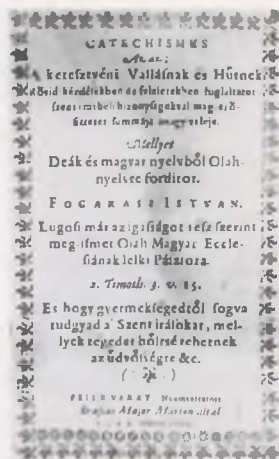 CATECHISMUS
Azaz:
A keresztyéni Vallásnak és Hűtnek
Rövid kérdésekben és feleletekben foglaltatott
szent irásbeli bizonyságokkal meg erő-
summája veleje.
Mellyet
Deák és magyar nyelvből Oláh-
nyelvre forditot.
FOGARASI ISTVAN,
Lugosi már az igasságot resz szerint
meg-ismert Oláh Magyar Eccle-
siának lelki Pásztora.
2. Timoth. 3. v. 15.
Es hogy gyermekségedtől fogva
tudgyad a' Szent irásokat, mel-
lyek tégedet bölcsé tehetnek
az üdvösségre &c.